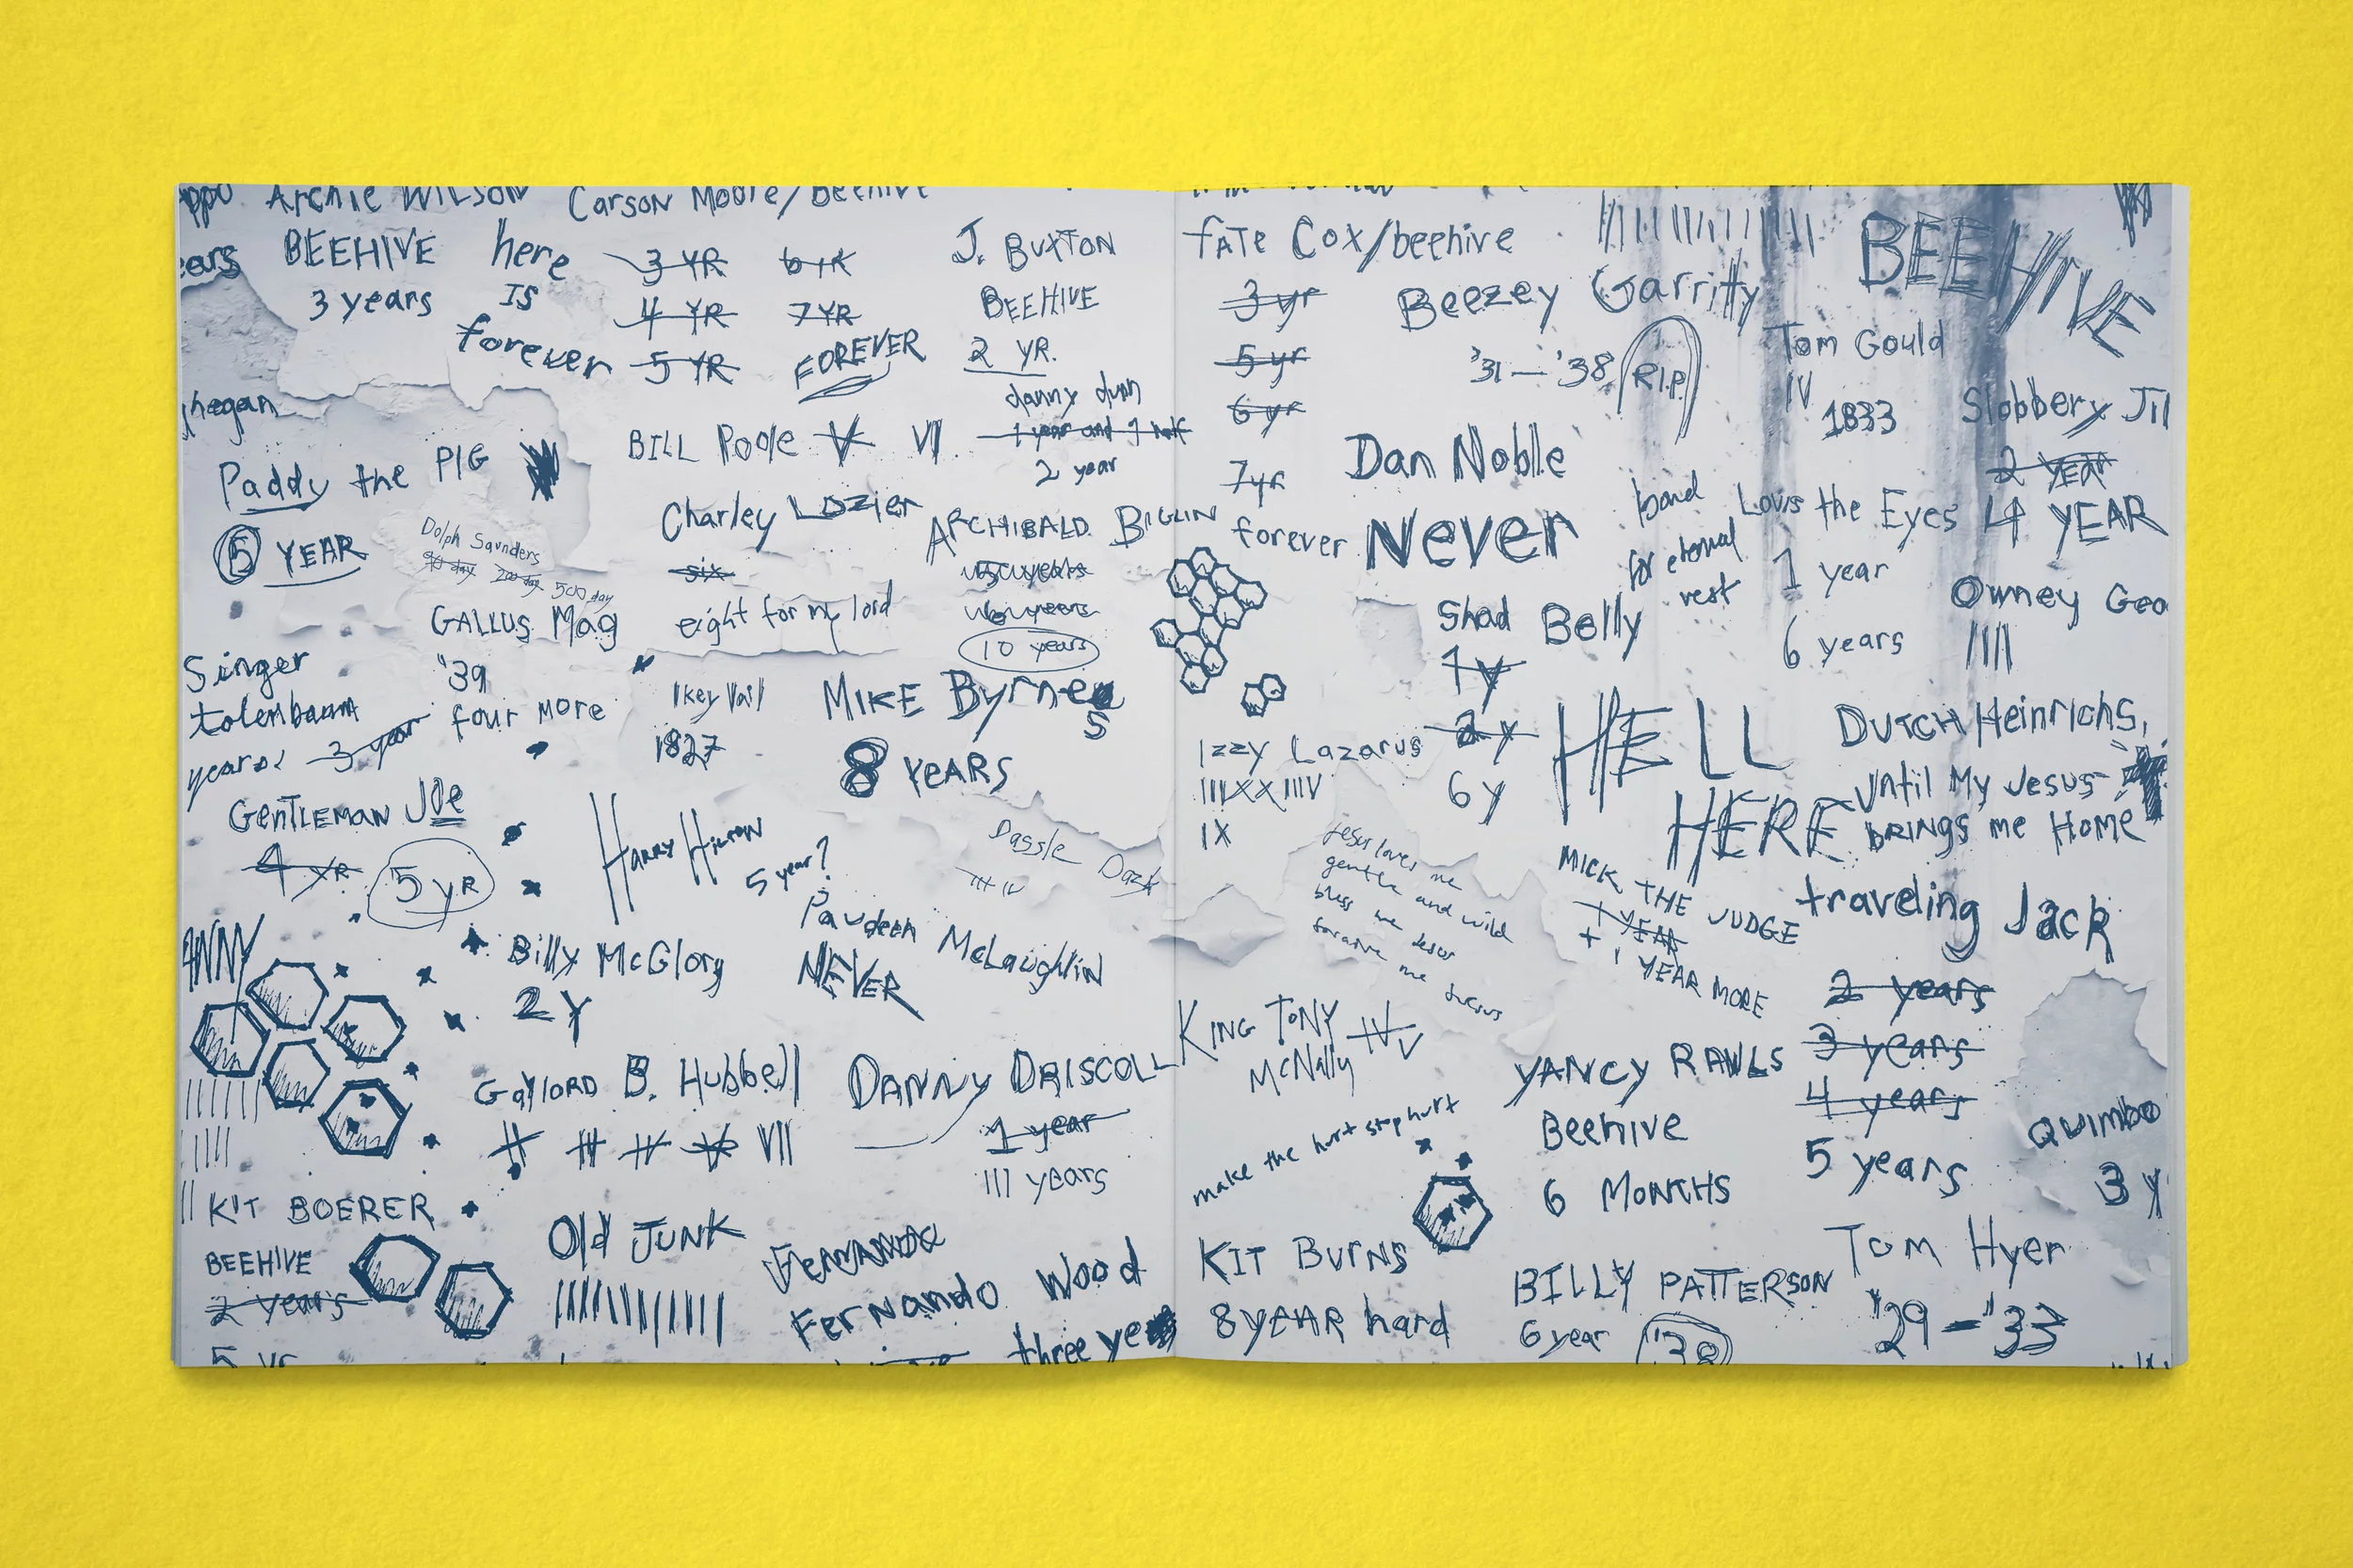 Archie Wilson
BEEHIVE
3 years
here
is
forever
Carson Moore/Beehive
3 YR
4 YR
5 YR
6 YR
7 YR
FOREVER
J. BUXTON
BEEHIVE
2 YR.
danny dunn
1 year and 1 half
2 year
hegan
Paddy the PIG
5 YEAR
BILL Poole V VI
Dolph Saunders
90 day 200 day 500 day
Charley Lozier
six
eight for my lord
ARCHIBALD BIGLIN
10 years
GALLUS Mag
'39
four more
Singer
tolenbaum
years! 3 year
Ikey Vail
1827
MIKE Byrnes
8 YEARS
GENTLEMAN JOE
4 YR 5 YR
HARRY HILTON
5 year?
Dassle Dazk
Paudeen McLaughlin
NEVER
Billy McGlory
2 Y
Gaylord B. Hubbell
VII
DANNY DRISCOLL
1 year
III years
KIT BOERER
BEEHIVE
2 years
5 yr
Old JUNK
Fernando
Fernando Wood
three
FATE Cox/beehive
3 yr
5 yr
6 yr
7yr
forever
Beezey Garrity
'31 — '38
R.I.P.
BEEHIVE
Tom Gould
IV
1833
Slobbery Jil
2 YEAR
4 YEAR
Dan Noble
Never
bound
for eternal
rest
Louis the Eyes
1 year
6 years
Owney Geo
IIII
Shad Belly
1 y
2 y
6 y
Izzy Lazarus
IIIXXIIIV
IX
HELL
HERE
DUTCH Heinrichs,
Until My Jesus
BRINGS me HOME
Jesus loves me
gentle and wild
bless me Jesus
forgive me Jesus
MICK THE JUDGE
1 YEAR
+ 1 YEAR MORE
traveling Jack
2 years
3 years
4 years
5 years
KING TONY
McNally
IV V
make the hurt stop hurt
YANCY RAWLS
Beehive
6 MONTHS
QUIMBO
3 Y
KIT BURNS
8 YEAR hard
BILLY PATTERSON
6 year '38
Tom Hyer
'29 — '33